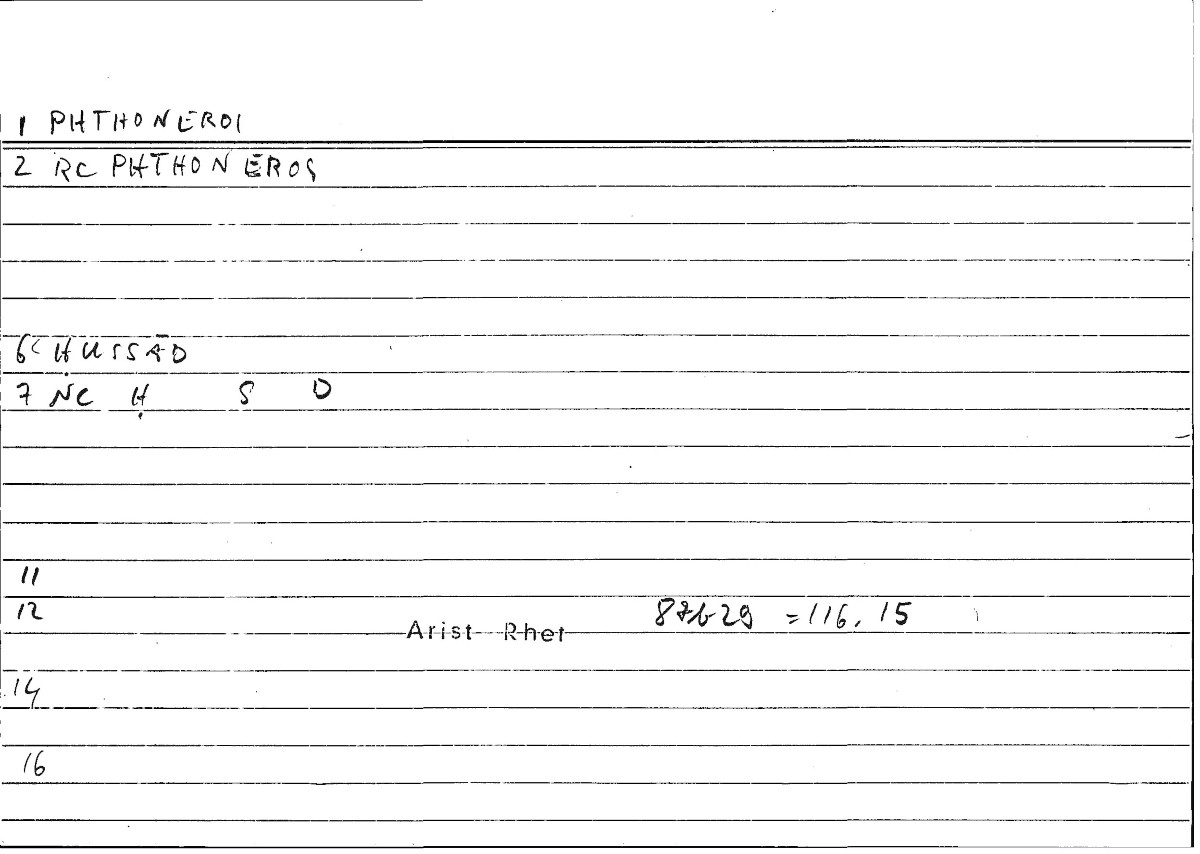 1 PHTHONEROI
2 RC PHTHONEROS
6C ḤUSSĀD
7 NC Ḥ S D
11
12
Arist Rhet 87b29 =116,15
14
16